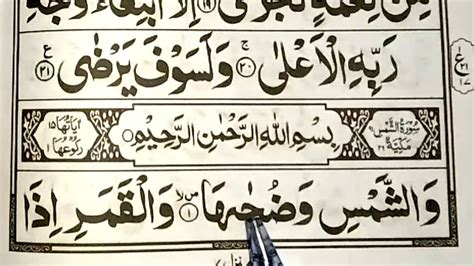 مِنْ نِّعْمَةٍ تُجْزٰۤى ۙ﴿۱۹﴾ اِلَّا ابْتِغَآءَ وَجْهِ
رَبِّهِ الْاَعْلٰى ۚ﴿۲۰﴾ وَلَسَوْفَ يَرْضٰى ﴿۲۱﴾
سُوْرَةُ الشَّمْسِ مَكِّيَّةٌ بِسْمِ اللهِ الرَّحْمٰنِ الرَّحِيْمِ اٰيَاتُهَا ۱۵ رُكُوْعُهَا ۱
وَالشَّمْسِ وَضُحٰىهَا ﴿۱﴾ وَالْقَمَرِ اِذَا